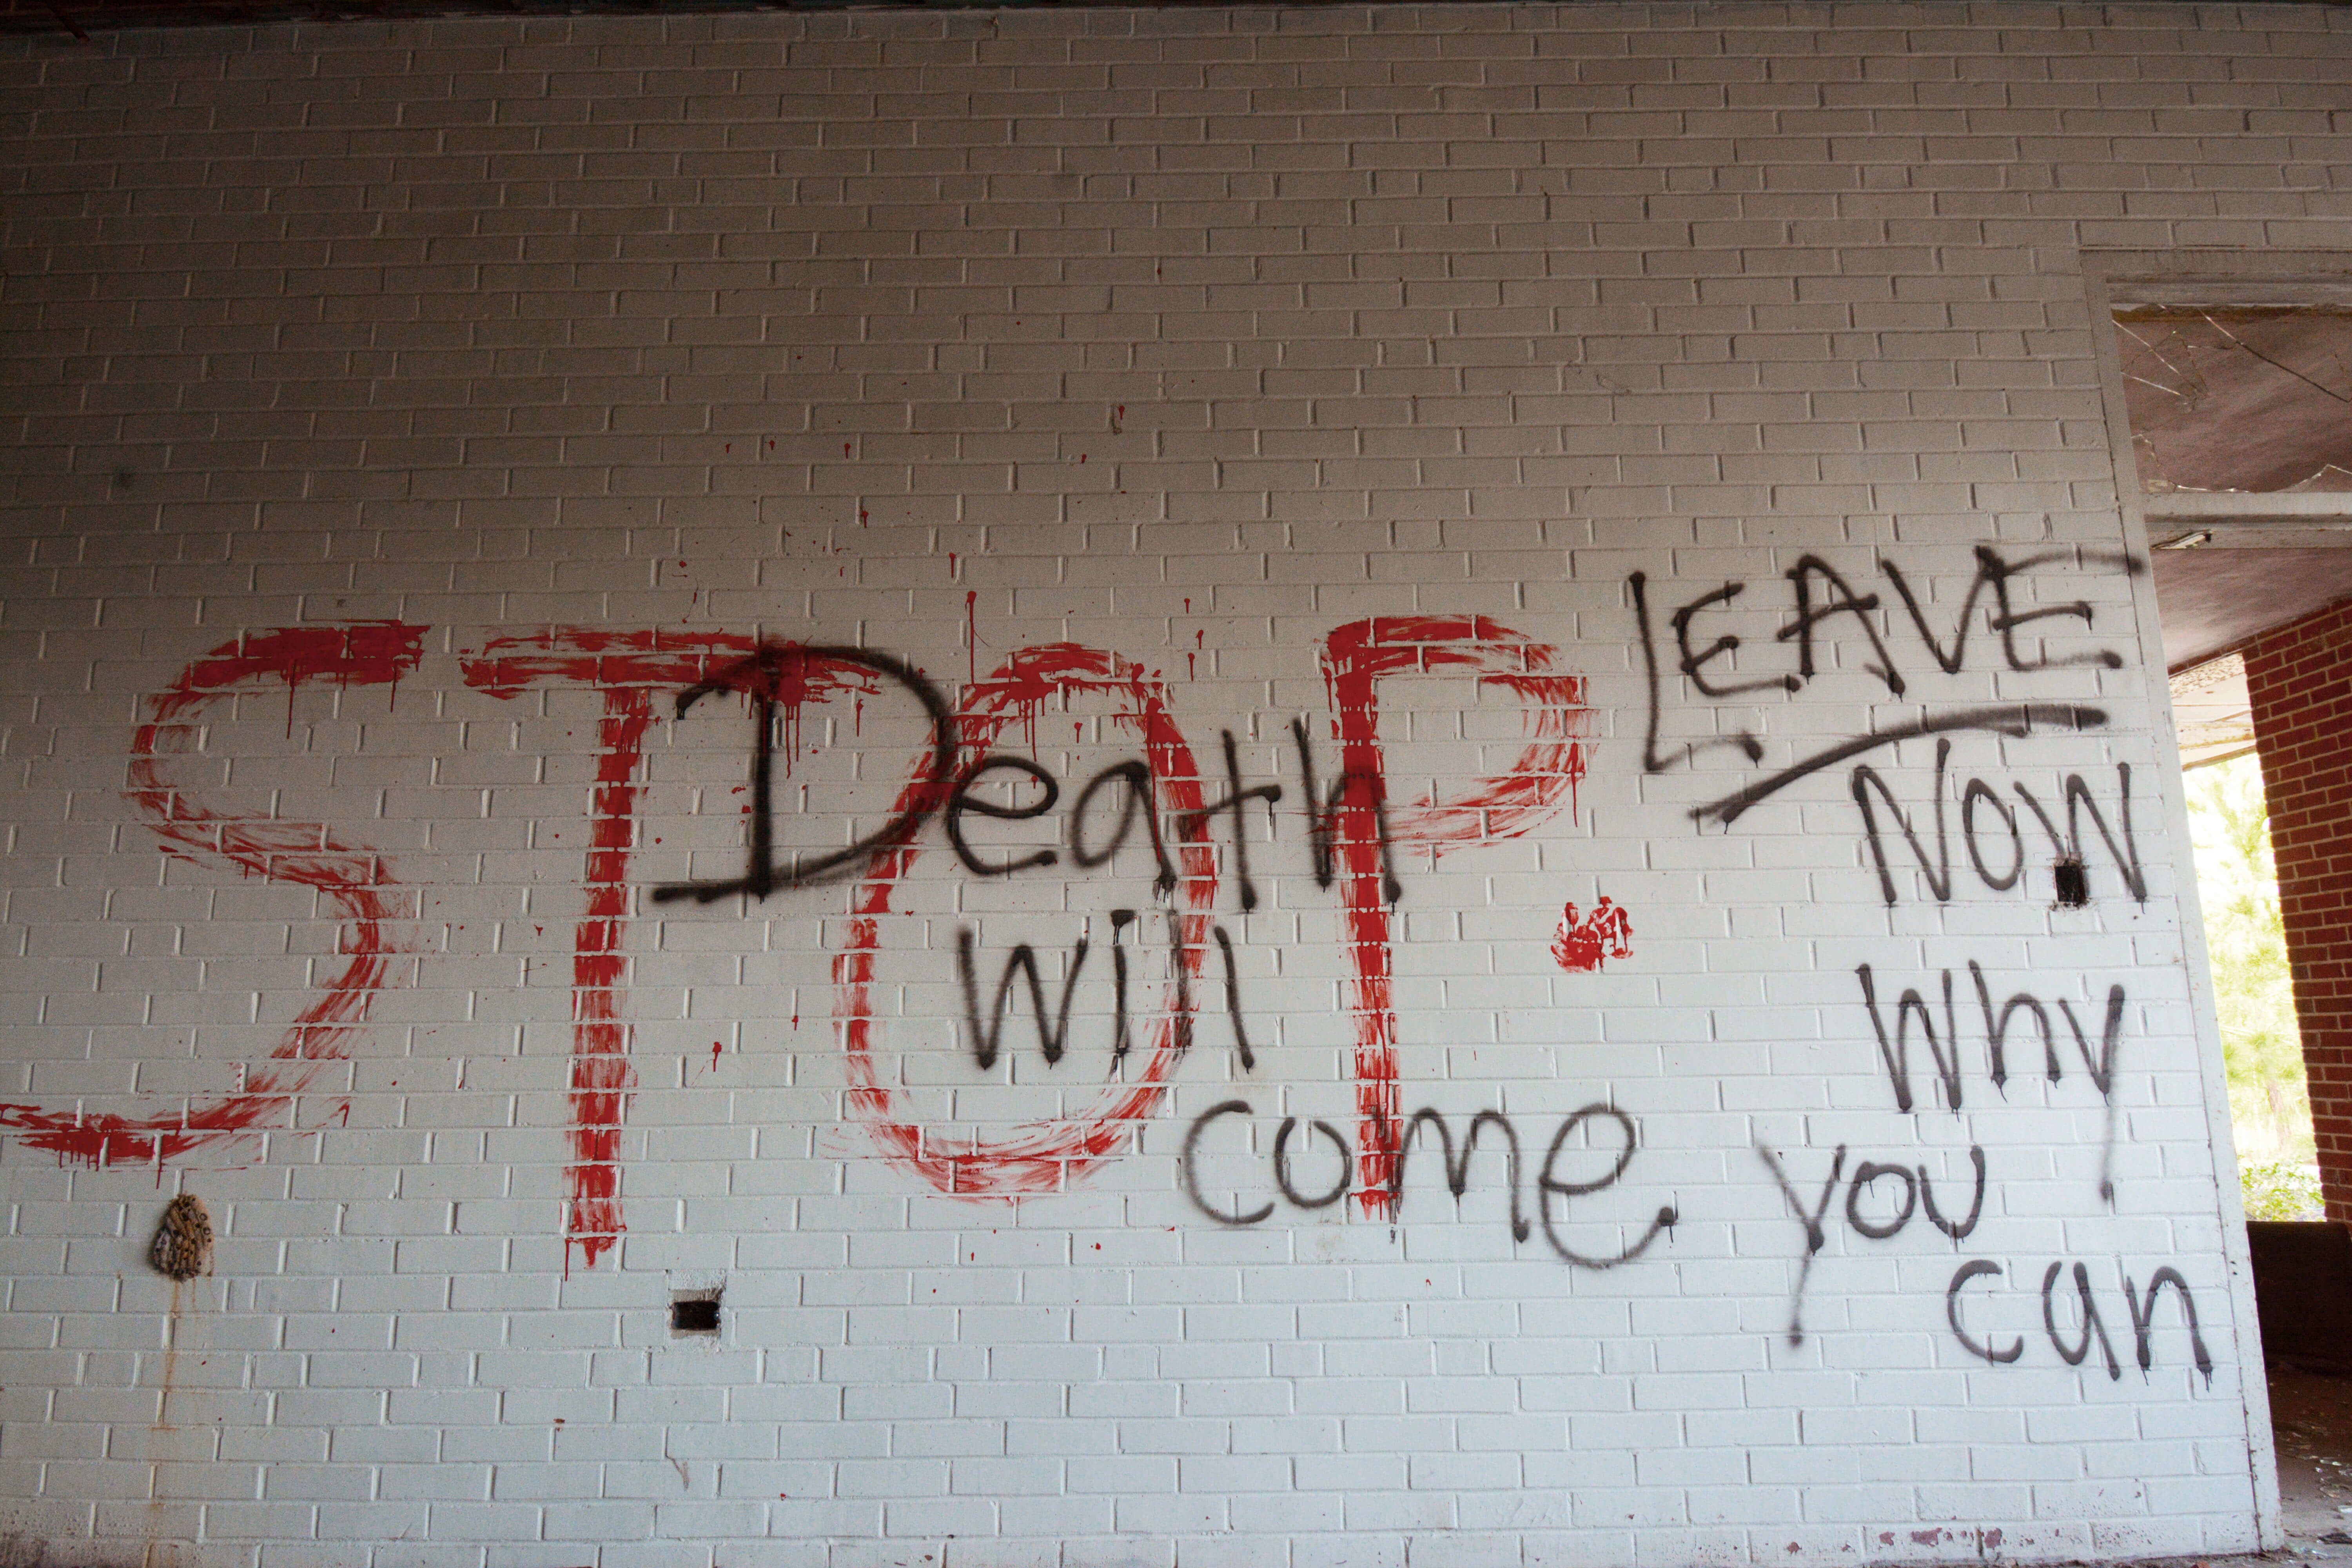 STOP.
Death
will
come
LEAVE
NOW
Why
you
can